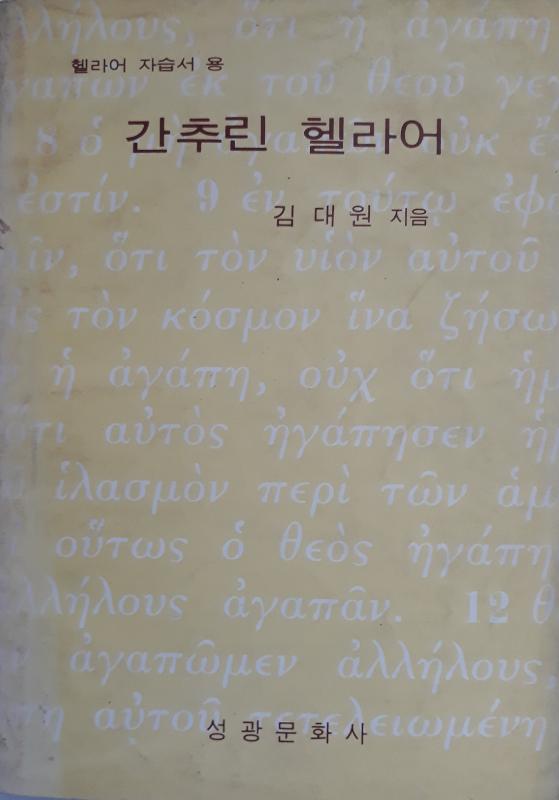 λλήλους, ὅτι ἡ ἀγάπη
헬라어 자습서 용
γαπῶν ἐκ τοῦ θεοῦ γε
간추린 헬라어
8 ὁ
οὐκ
ἐστίν. 9 ἐν τούτῳ ἐφ
김 대 원 지음
ῖν, ὅτι τὸν υἱὸν αὐτοῦ
ις τὸν κόσμον ἵνα ζήσω
ἡ ἀγάπη, οὐχ ὅτι ἡμ
ὅτι αὐτὸς ἠγάπησεν ἡμ
ἱλασμὸν περὶ τῶν ἁμ
οὕτως ὁ θεὸς ἠγάπη
λλήλους ἀγαπᾶν. 12 θ
ἀγαπῶμεν ἀλλήλους,
πη αὐτοῦ τετελειωμένη
성 광 문 화 사